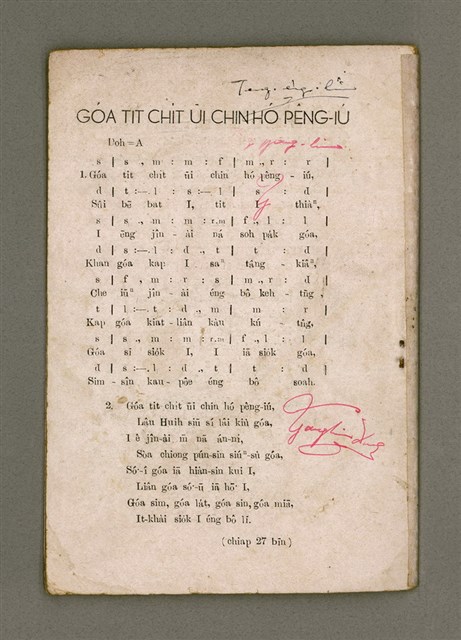 GÓA TIT CHÍT ŪI CHIN HÓ PÊNG-IÚ
Doh = A
s | s ., m : m : f | m ., r : r |
1. Góa tit chit ūi chin hó pêng-iú,
d | t :—. l : s :—. l | s : d |
Sûi bē bat I, tit I thiàⁿ,
s | s ., m : m : r.m | f ., l : l |
I ēng jîn-ài ná soh pák góa,
d | s :—. l : d ., t | t : d |
Khan góa kap I saⁿ tâng-kiâⁿ,
s | f ., m : r : s | m ., r : d |
Che iūⁿ jîn-ài éng bô keh-tn̄g,
t | l :—. t : d ., m | m : r |
Kap góa kiat-liân kàu kú-tn̂g,
s | s ., m : m : r.m | f ., l : l |
Góa sī siòk I, I iā siòk góa,
d | s :—. l : d ., t | t : d |
Sim-sîn kau-pôe éng bô soah.
2. Góa tit chit ūi chin hó pêng-iú,
Lâu Huih siū sí lâi kiù góa,
I ê jîn-ài m̄ nā án-ni,
Sòa chiong pún-sin siúⁿ-sù góa,
Só·-í góa iā hiàn-sin kui I,
Liân góa só·-ū iā hō· I,
Góa sim, góa lát, góa sin, góa miā,
It-khài siók I éng bô lī.
(chiap 27 bīn)